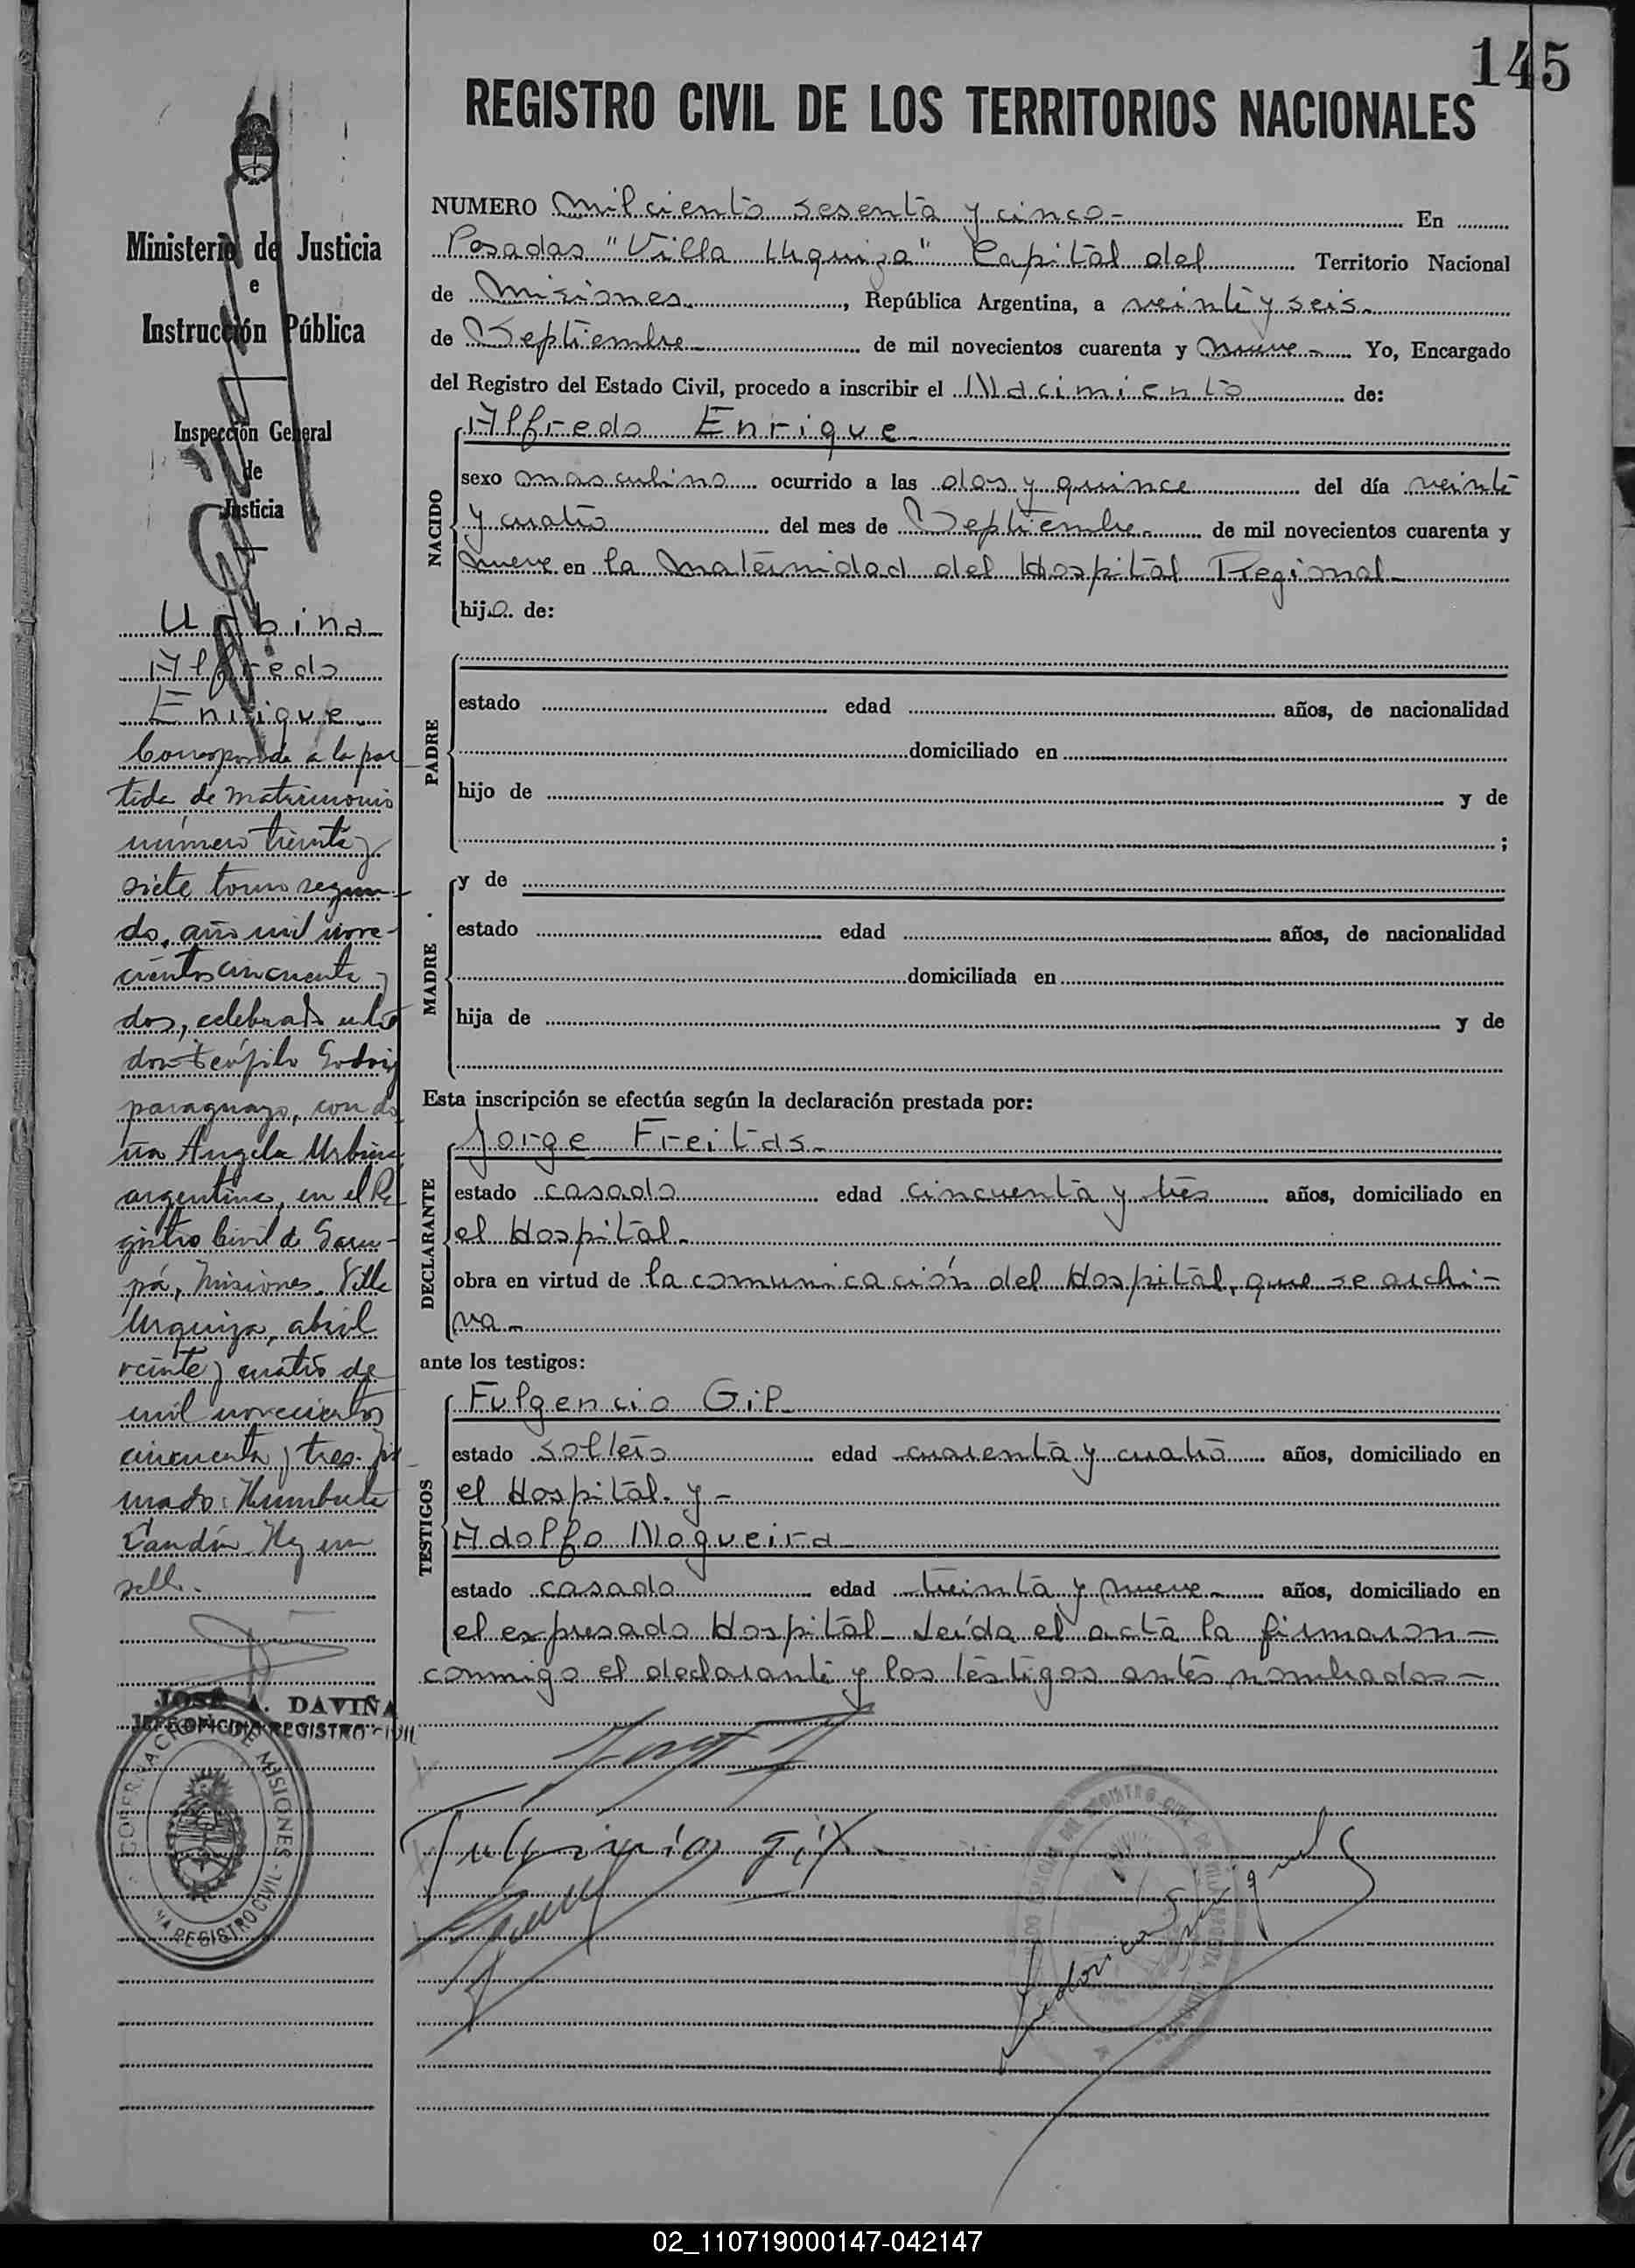 145
REGISTRO CIVIL DE LOS TERRITORIOS NACIONALES
Ministerio de Justicia
e
Instrucción Pública
Inspección General
de
Justicia
Urbina
Alfredo
Enrique
Corresponde a la par
tida de matrimonio
número treinta y
siete tomo segun-
do, año mil nove-
cientos cincuenta y
dos, celebrado entre
don Teófilo Godoy
paraguayo, con do
ña Angela Urbina
argentina, en el Re
gistro Civil de Garu-
pá, Misiones. Villa
Urquiza, abril
veinte y cuatro de
mil novecientos
cincuenta y tres. Fir
mado: Humberto
Hay un
sello.
JOSE A. DAVIÑA
JEFE OFICINA REGISTRO CIVIL
GOBERNACION DE MISIONES - REGISTRO CIVIL
NUMERO mil ciento sesenta y cinco- En
Posadas "Villa Urquiza" Capital del Territorio Nacional
de Misiones, República Argentina, a veinte y seis.
de Septiembre de mil novecientos cuarenta y nueve Yo, Encargado
del Registro del Estado Civil, procedo a inscribir el Nacimiento de:
NACIDO
Alfredo Enrique
sexo masculino ocurrido a las dos y quince del día veinte
y cuatro del mes de Septiembre de mil novecientos cuarenta y
nueve en la Maternidad del Hospital Regional
hijo de:
PADRE
estado edad años, de nacionalidad
domiciliado en
hijo de y de
;
MADRE
y de
estado edad años, de nacionalidad
domiciliada en
hija de y de
Esta inscripción se efectúa según la declaración prestada por:
DECLARANTE
Jorge Freitas
estado casado edad cincuenta y tres años, domiciliado en
el Hospital
obra en virtud de la comunicación del Hospital, que se archi-
va
ante los testigos:
TESTIGOS
Fulgencio Gil
estado soltero edad cuarenta y cuatro años, domiciliado en
el Hospital. y -
Adolfo Nogueira
estado casado edad treinta y nueve años, domiciliado en
el expresado Hospital- Leída el acta la firmaron-
conmigo el declarante y los testigos antes nombrados-
Fulgencio Gil
02_110719000147-042147